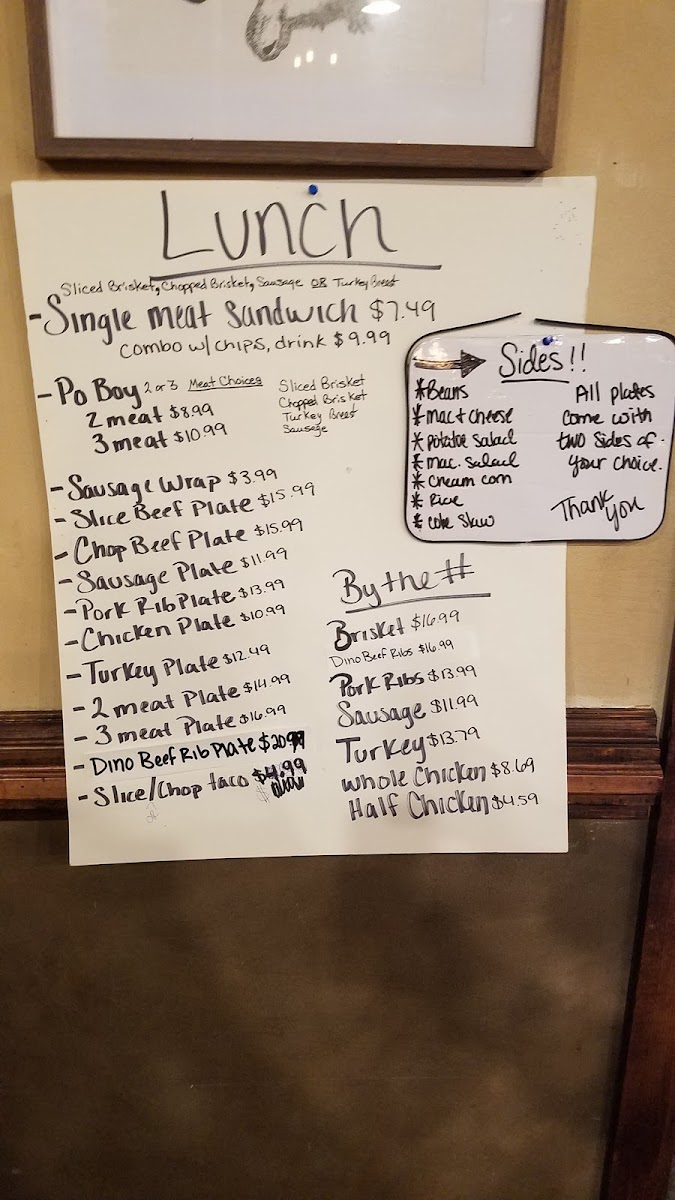 Lunch
Sliced Brisket, Chopped Brisket, Sausage OR Turkey Breast
-Single meat Sandwich $7.49
combo w/ chips, drink $9.99
-Po Boy 2 or 3 Meat Choices
2 meat $8.99
3 meat $10.99
Sliced Brisket
Chopped Brisket
Turkey Breast
Sausage
-Sausage Wrap $3.99
-Slice Beef Plate $15.99
-Chop Beef Plate $15.99
-Sausage Plate $11.99
-Pork Rib Plate $13.99
-Chicken Plate $10.99
-Turkey Plate $12.49
-2 meat Plate $14.99
-3 meat Plate $16.99
-Dino Beef Rib Plate $20.99
-Slice/Chop taco $4.99
Sides!!
*Beans
*mac + cheese
*potatoe salad
*mac. salad
*cream corn
*Rice
*cole slaw
All plates
come with
two sides of
your choice.
Thank you
By the #
Brisket $16.99
Dino Beef Ribs $16.99
Pork Ribs $13.99
Sausage $11.99
Turkey $13.79
whole Chicken $8.69
Half Chicken $4.59